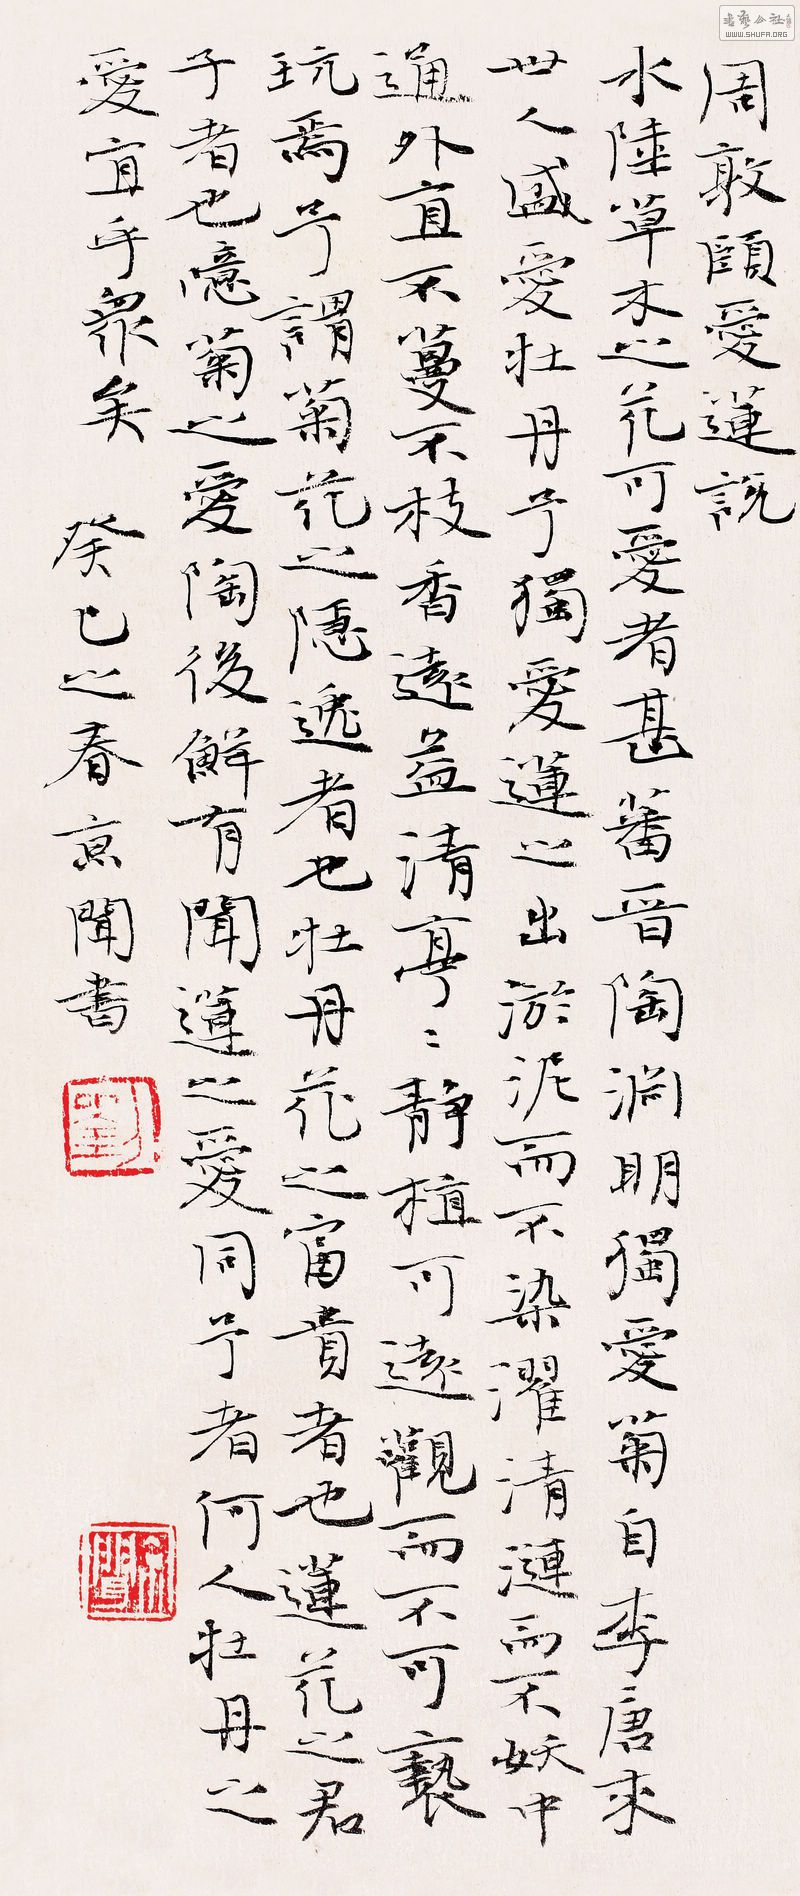 周敦頤愛蓮説
水陸草木之花可愛者甚蕃晉陶淵明獨愛菊自李唐來
世人盛愛牡丹予獨愛蓮之出淤泥而不染濯清漣而不妖中
通外直不蔓不枝香遠益清亭〻静植可遠觀而不可褻
玩焉予謂菊花之隱逸者也牡丹花之富貴者也蓮花之君
子者也噫菊之愛陶後鮮有聞蓮之愛同予者何人牡丹之
愛宜乎衆矣 癸巳之春京聞書
京聞
書藝公社
WWW.SHUFA.ORG